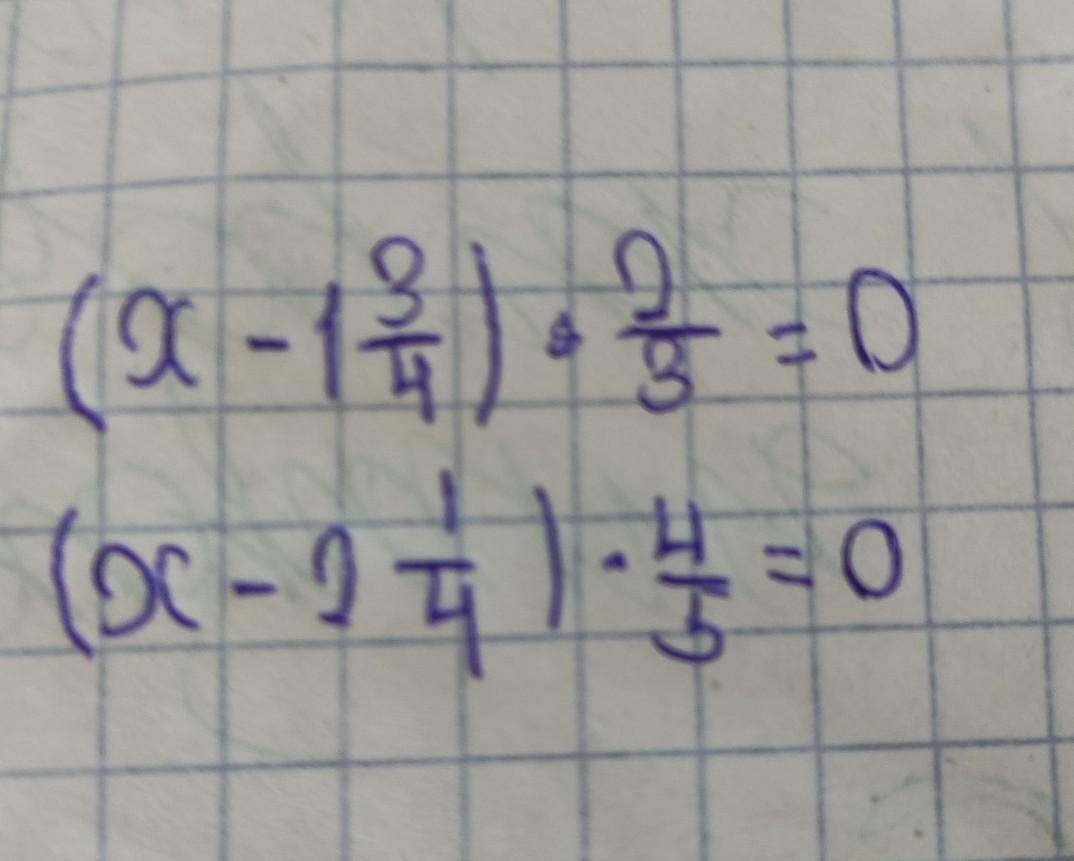 (x - 1 3/4) · 2/3 = 0
(x - 2 1/4) · 4/5 = 0